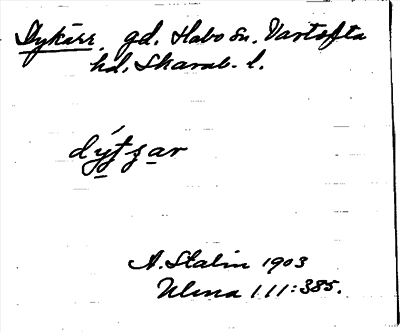 Dykärr, gd. Habo sn. Vartofta
hd. Skarab. l.
dýtʂar
A. Stalin 1903
Ulma 111:385.